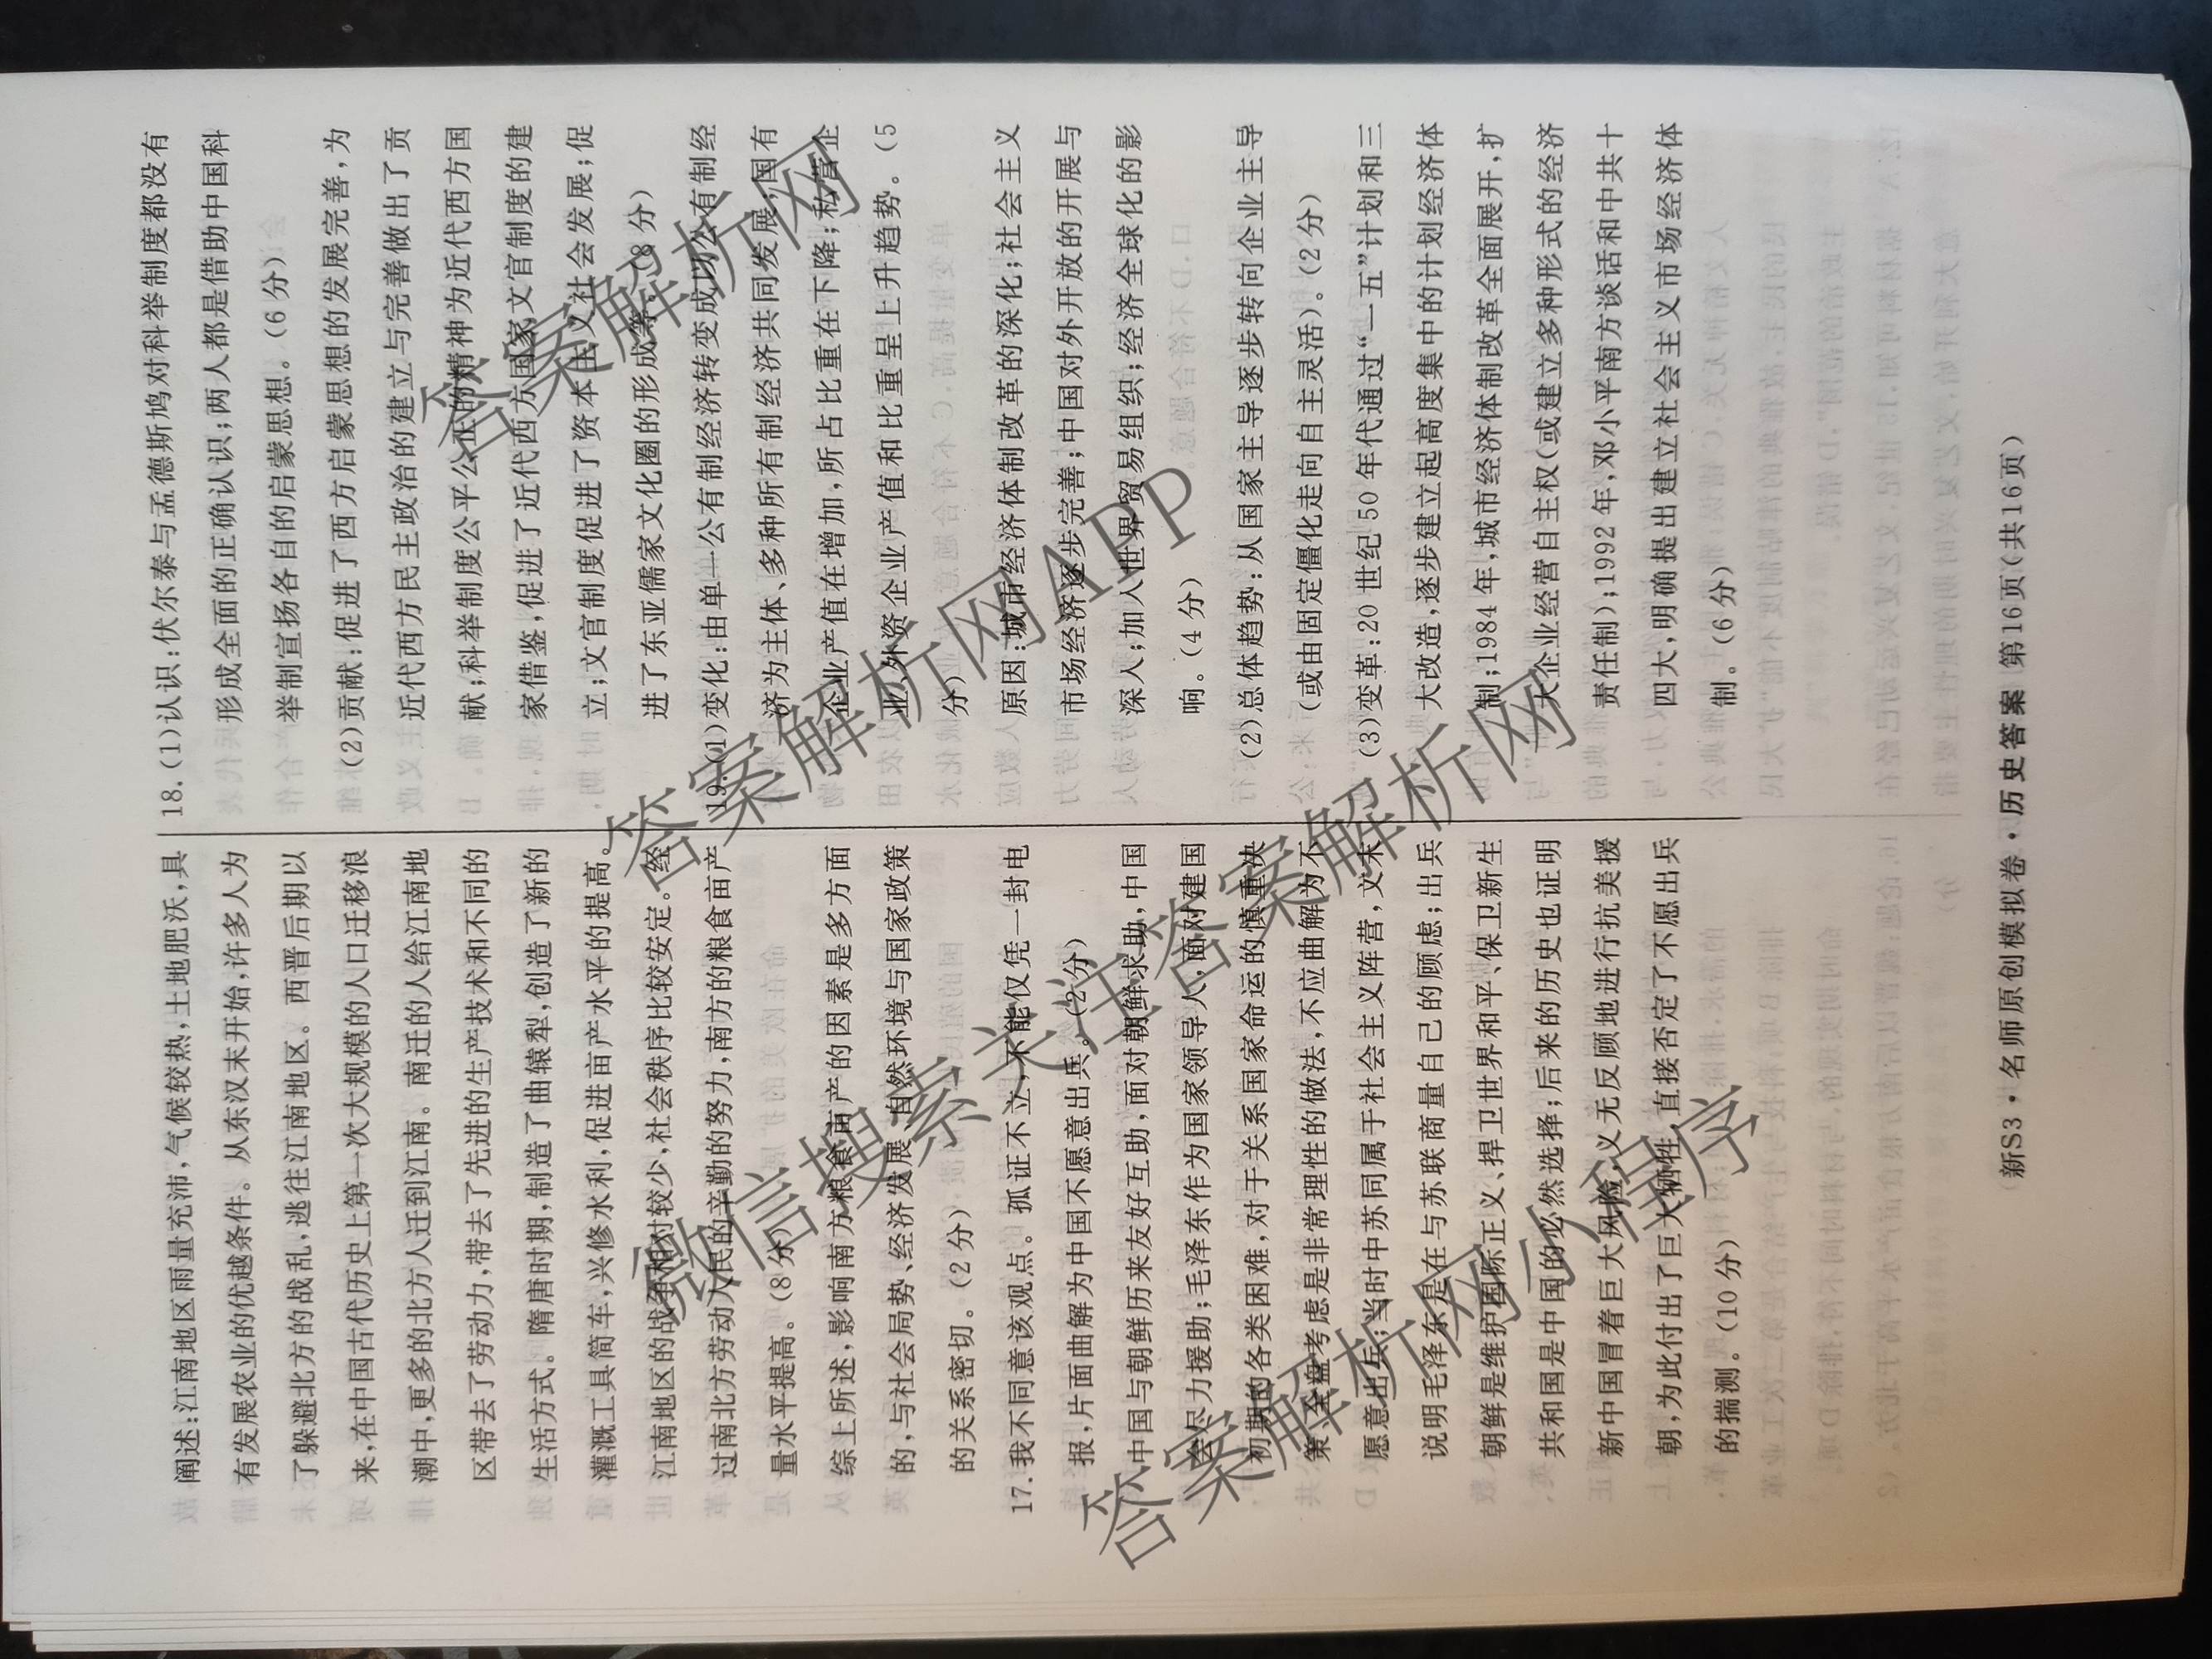 阐述:江南地区雨量充沛,气候较热,土地肥沃,具
有发展农业的优越条件。从东汉末开始,许多人为
了躲避北方的战乱,逃往江南地区。西晋后期以
来,在中国古代历史上第一次大规模的人口迁移浪
潮中,更多的北方人迁到江南。南迁的人给江南地
区带去了劳动力,带去了先进的生产技术和不同的
生活方式。隋唐时期,制造了曲辕犁,创造了新的
灌溉工具筒车,兴修水利,促进亩产水平的提高。
江南地区的战争相对较少,社会秩序比较安定。经
过南北方劳动人民的辛勤的努力,南方的粮食亩产
量水平提高。(8分)
综上所述,影响南方粮食亩产的因素是多方面
的,与社会局势、经济发展、自然环境与国家政策
的关系密切。(2分)
17.我不同意该观点。孤证不立,不能仅凭一封电
报,片面曲解为中国不愿意出兵。(2分)
中国与朝鲜历来友好互助,面对朝鲜求助,中国
会尽力援助;毛泽东作为国家领导人,面对建国
初期的各类困难,对于关系国家命运的慎重决
策、全盘考虑是非常理性的做法,不应曲解为不
愿意出兵;当时中苏同属于社会主义阵营,文末
说明毛泽东是在与苏联商量自己的顾虑;出兵
朝鲜是维护国际正义、捍卫世界和平、保卫新生
共和国是中国的必然选择;后来的历史也证明
新中国冒着巨大风险,义无反顾地进行抗美援
朝,为此付出了巨大牺牲,直接否定了不愿出兵
的揣测。(10分)
18.(1)认识:伏尔泰与孟德斯鸠对科举制度都没有
形成全面的正确认识;两人都是借助中国科
举制宣扬各自的启蒙思想。(6分)
(2)贡献:促进了西方启蒙思想的发展完善,为
近代西方民主政治的建立与完善做出了贡
献;科举制度公平公正的精神为近代西方国
家借鉴,促进了近代西方国家文官制度的建
立;文官制度促进了资本主义社会发展;促
进了东亚儒家文化圈的形成等。(8分)
19.(1)变化:由单一公有制经济转变成以公有制经
济为主体、多种所有制经济共同发展;国有
企业产值在增加,所占比重在下降;私营企
业、外资企业产值和比重呈上升趋势。(5
分)
原因:城市经济体制改革的深化;社会主义
市场经济逐步完善;中国对外开放的开展与
深入;加入世界贸易组织;经济全球化的影
响。(4分)
(2)总体趋势:从国家主导逐步转向企业主导
(或由固定僵化走向自主灵活)。(2分)
(3)变革:20世纪50年代通过“一五”计划和三
大改造,逐步建立起高度集中的计划经济体
制;1984年,城市经济体制改革全面展开,扩
大企业经营自主权(或建立多种形式的经济
责任制);1992年,邓小平南方谈话和中共十
四大,明确提出建立社会主义市场经济体
制。(6分)
新S3·名师原创模拟卷·历史答案 第16页(共16页)
答案解析网
答案解析网APP
微信搜索关注答案解析网
答案解析网小程序